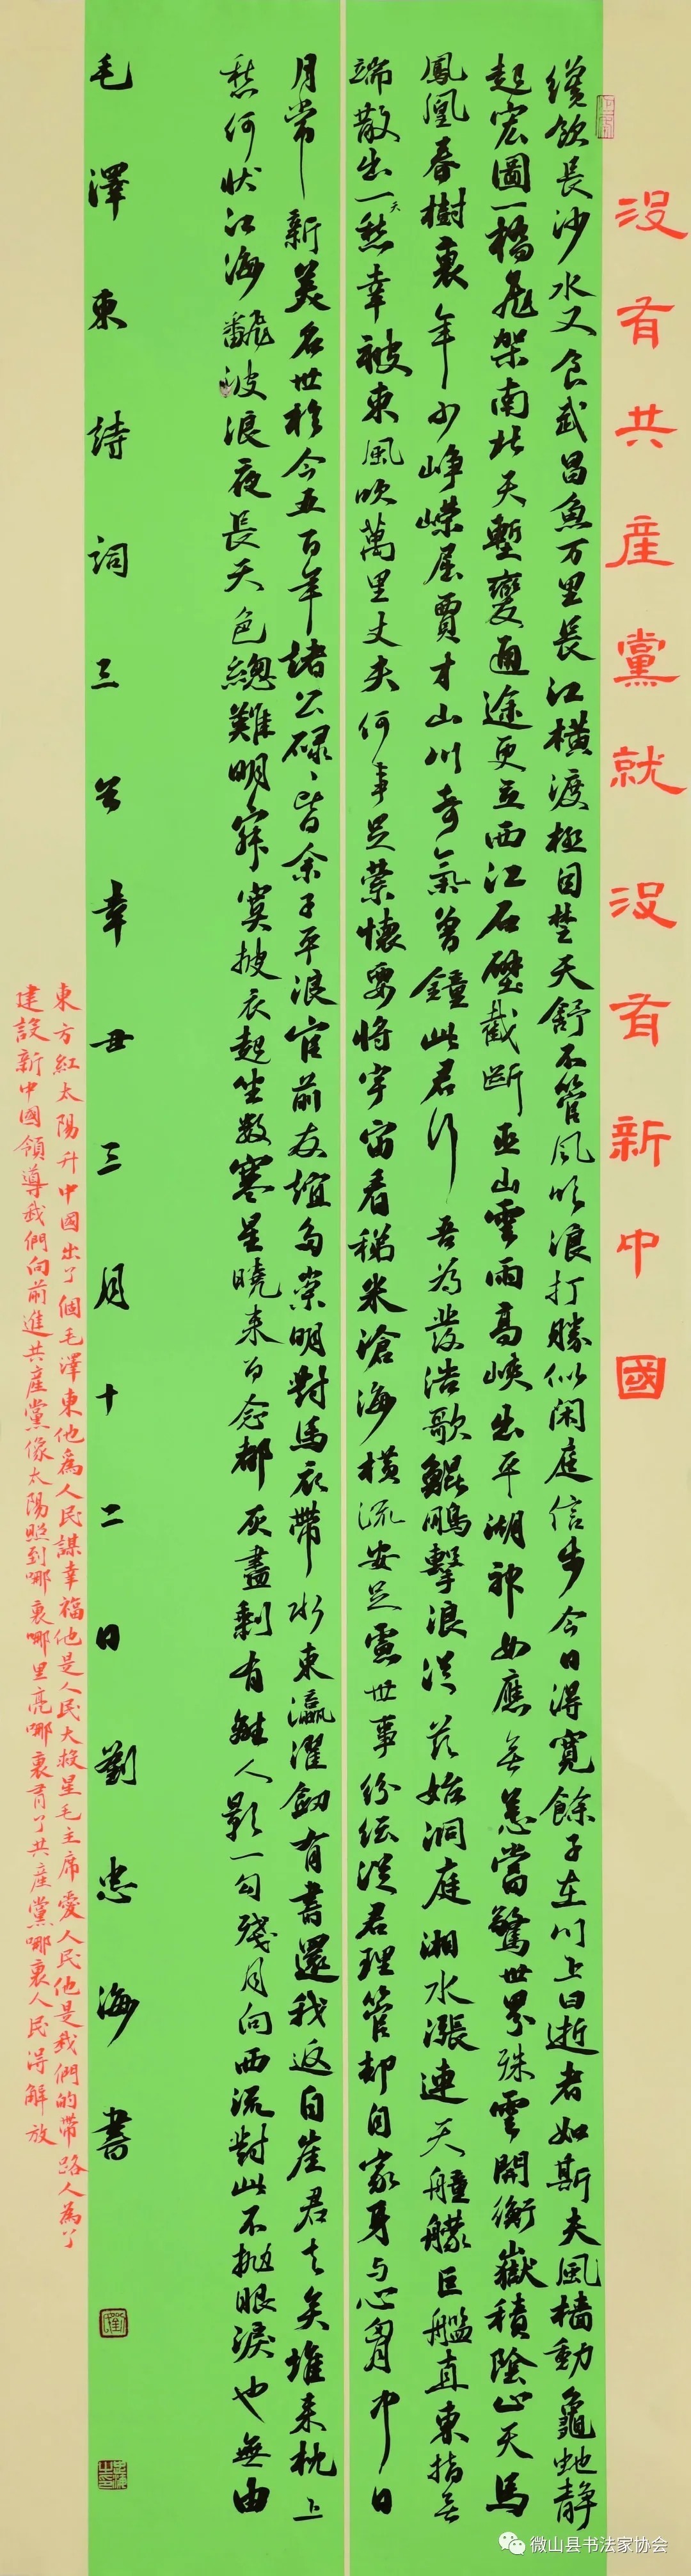 没有共産黨就没有新中國
纔飲長沙水又食武昌魚万里長江橫渡極目楚天舒不管風吹浪打勝似闲庭信步今日得寬餘子在川上曰逝者如斯夫風檣動龜虵静
起宏圖一橋飛架南北天塹變通途更立西江石壁截斷巫山雲雨高峽出平湖神女應無恙當驚世界殊雲開衡嶽積陰止天馬
鳳凰春樹裏年少崢嶸屈賈才山川奇氣曾鐘此君行吾為發浩歌鯤鵬擊浪從茲始洞庭湘水漲連天艟艨巨艦直東指無
端散出一天愁幸被東風吹萬里丈夫何事足縈懷要將宇宙看稊米滄海橫流安足慮世事紛紜從君理管却自家身與心胸中日
月常新美名世於今五百年諸公碌〻皆余子平浪宫前友誼多崇明對馬衣帶水東瀛濯劒有書還我返自崖君去矣堆来枕上
愁何狀江海翻波浪夜長天色總難明寂寞披衣起坐數寒星曉来百念都灰盡剩有離人影一勾殘月向西流對此不抛眼淚也無由
毛澤東詩詞三首辛丑三月十二日劉忠海書
東方紅太陽升中國出了個毛澤東他爲人民謀幸福他是人民大救星毛主席愛人民他是我們的帶路人為了
建設新中國領導我們向前進共産黨像太陽照到哪裏哪里亮哪裏有了共産黨哪裏人民得解放
微山县书法家协会